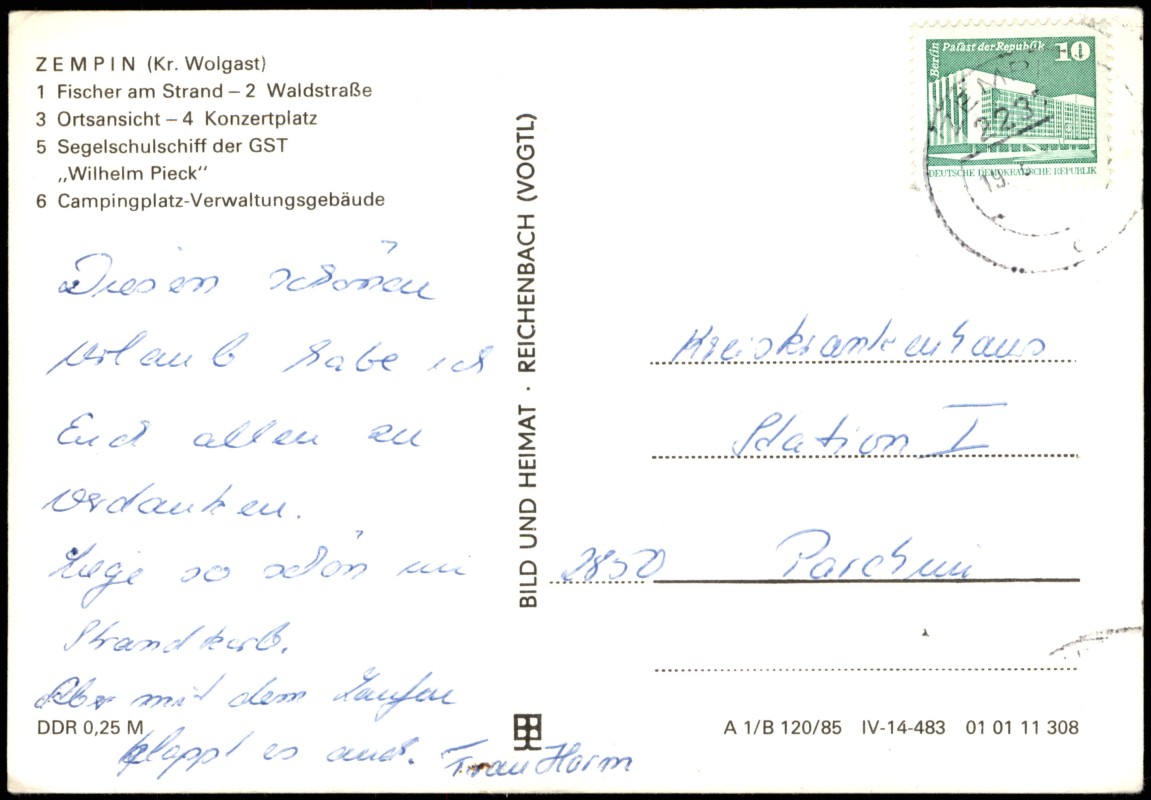 ZEMPIN (Kr. Wolgast)
1 Fischer am Strand – 2 Waldstraße
3 Ortsansicht – 4 Konzertplatz
5 Segelschulschiff der GST
„Wilhelm Pieck“
6 Campingplatz-Verwaltungsgebäude
Diesen schönen
Urlaub habe ich
Euch allen zu
verdanken.
Liege so schön im
Strandkorb.
Aber mit dem Laufen
klappt es auch. Frau Harm
DDR 0,25 M
BILD UND HEIMAT · REICHENBACH (VOGTL)
Berlin Palast der Republik 10
DEUTSCHE DEMOKRATISCHE REPUBLIK
ZEMPIN
223
19.
c
Kreiskrankenhaus
Station I
2850 Parchim
A 1/B 120/85 IV-14-483 01 01 11 308